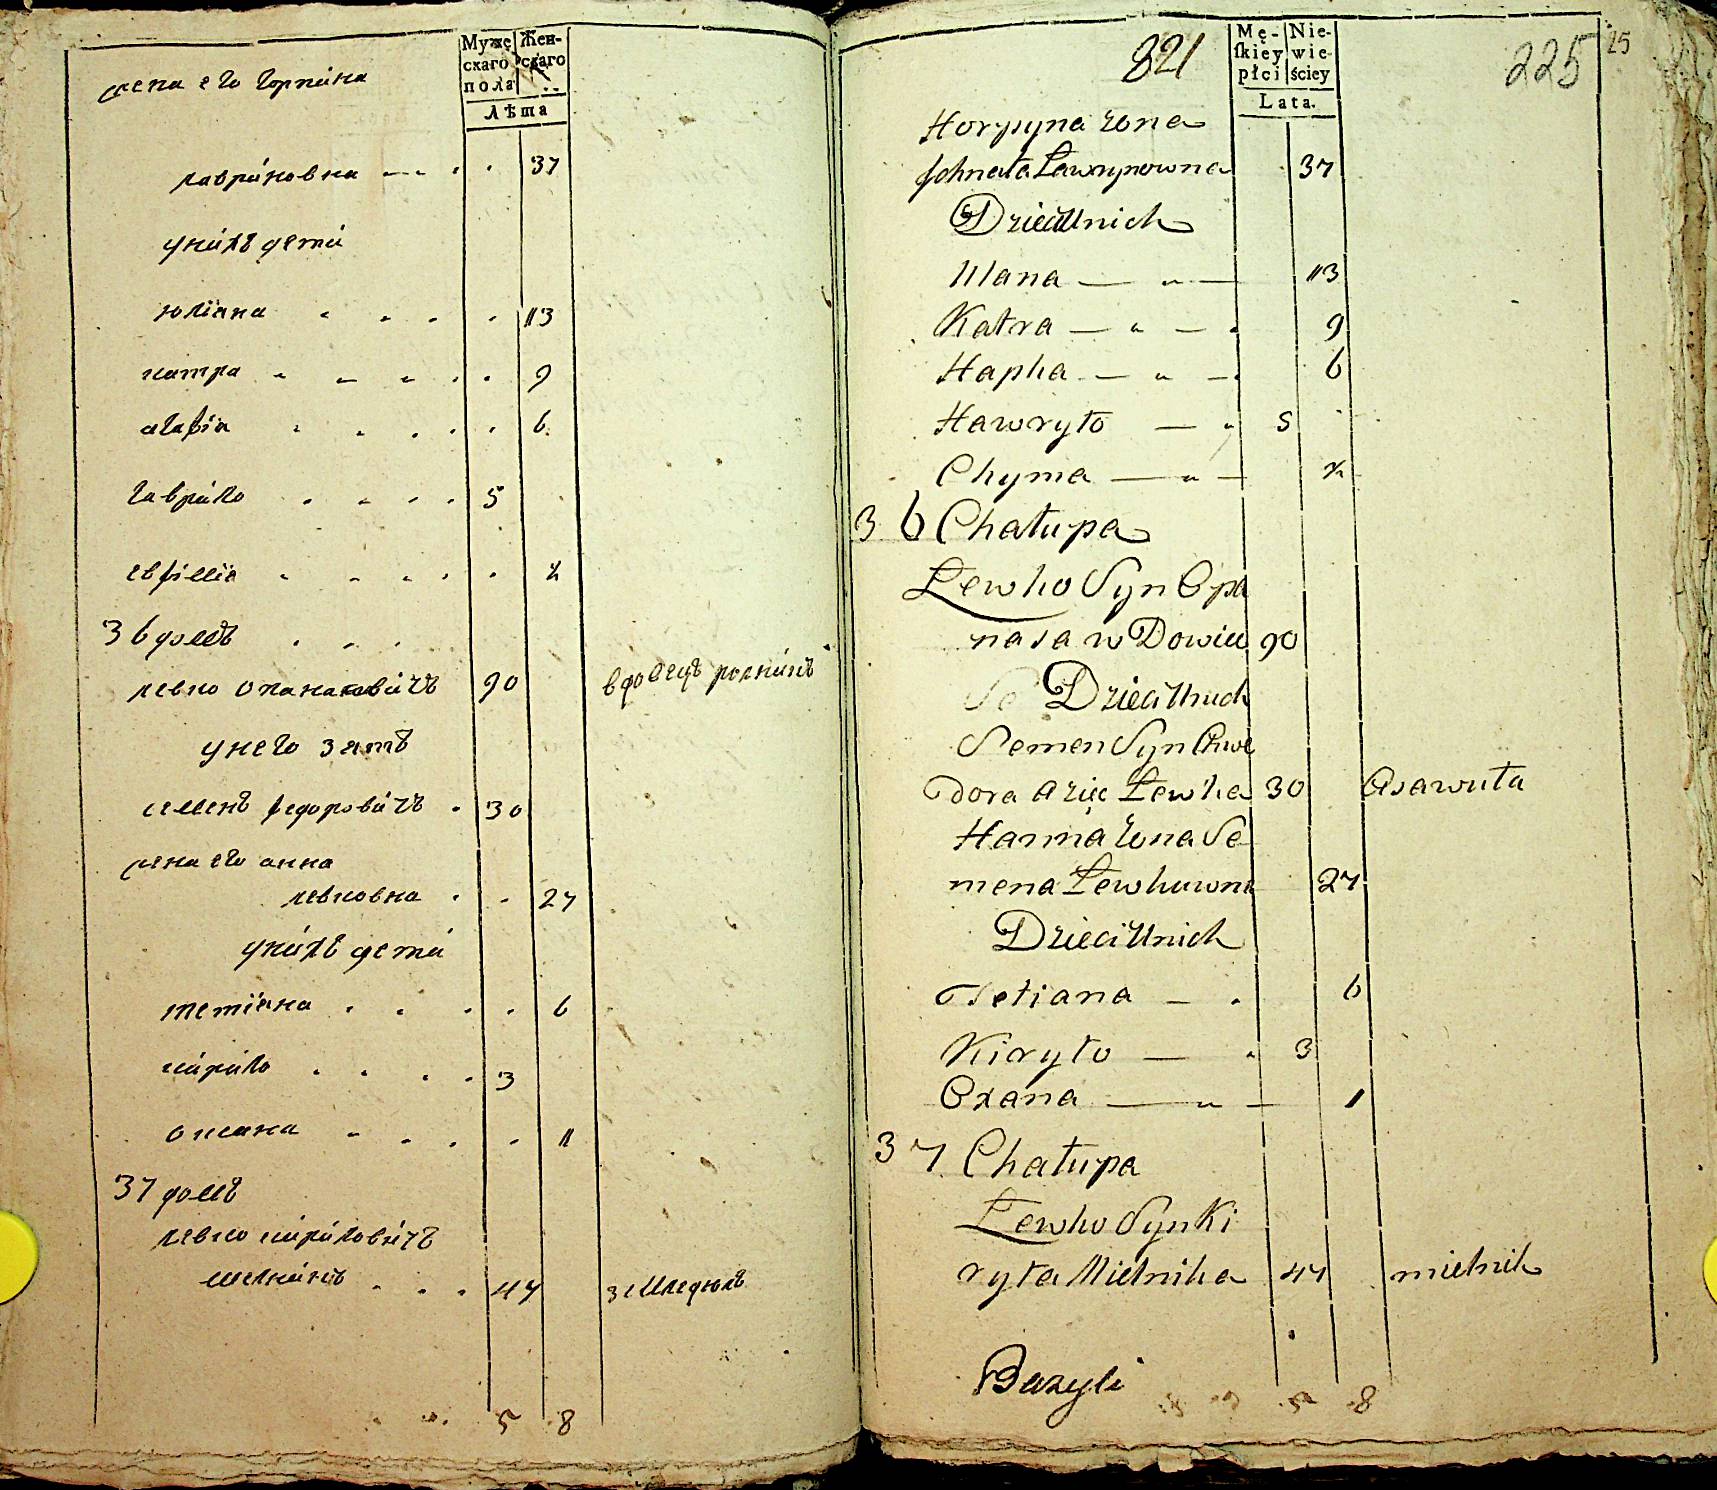 Мужескаго пола
Женскаго
Лѣта
жена его горпина
лавриновна 37
унихъ дети
юлiана 13
катра 9
агафiя 6
гаврило 5
евфимiя 2
36 домъ
левко опанасовичъ 90 вдовецъ
унего зять
семенъ федоровичъ 30
жена его анна
левковна 27
унихъ дети
тетiяна 6
кирило 3
оксана 1
37 домъ
левко кириловичъ
мелникъ 47
5 8
821
Mę-skiey płci
Nie-wieściey
Lata.
225
25
Horpyna żona
Ławrynowna 37
Dzieci Unich
Ulana 13
Katra 9
Hapha 6
Hawryło 5
Chyma 2
36 Chałupa
Lewko Syn Opa
nasa w Dowiec 90
Dzieci Unich
Semen Syn Chwe
dora Zięć Lewka 30 Asawuła
Hanna żona Se
mena Lewkuwna 27
Dzieci Unich
Tetiana 6
Kiryło 3
Oxana 1
37 Chałupa
Lewko Syn Ki
ryła Mielnika 47 mielnik
Bazyli
5 8